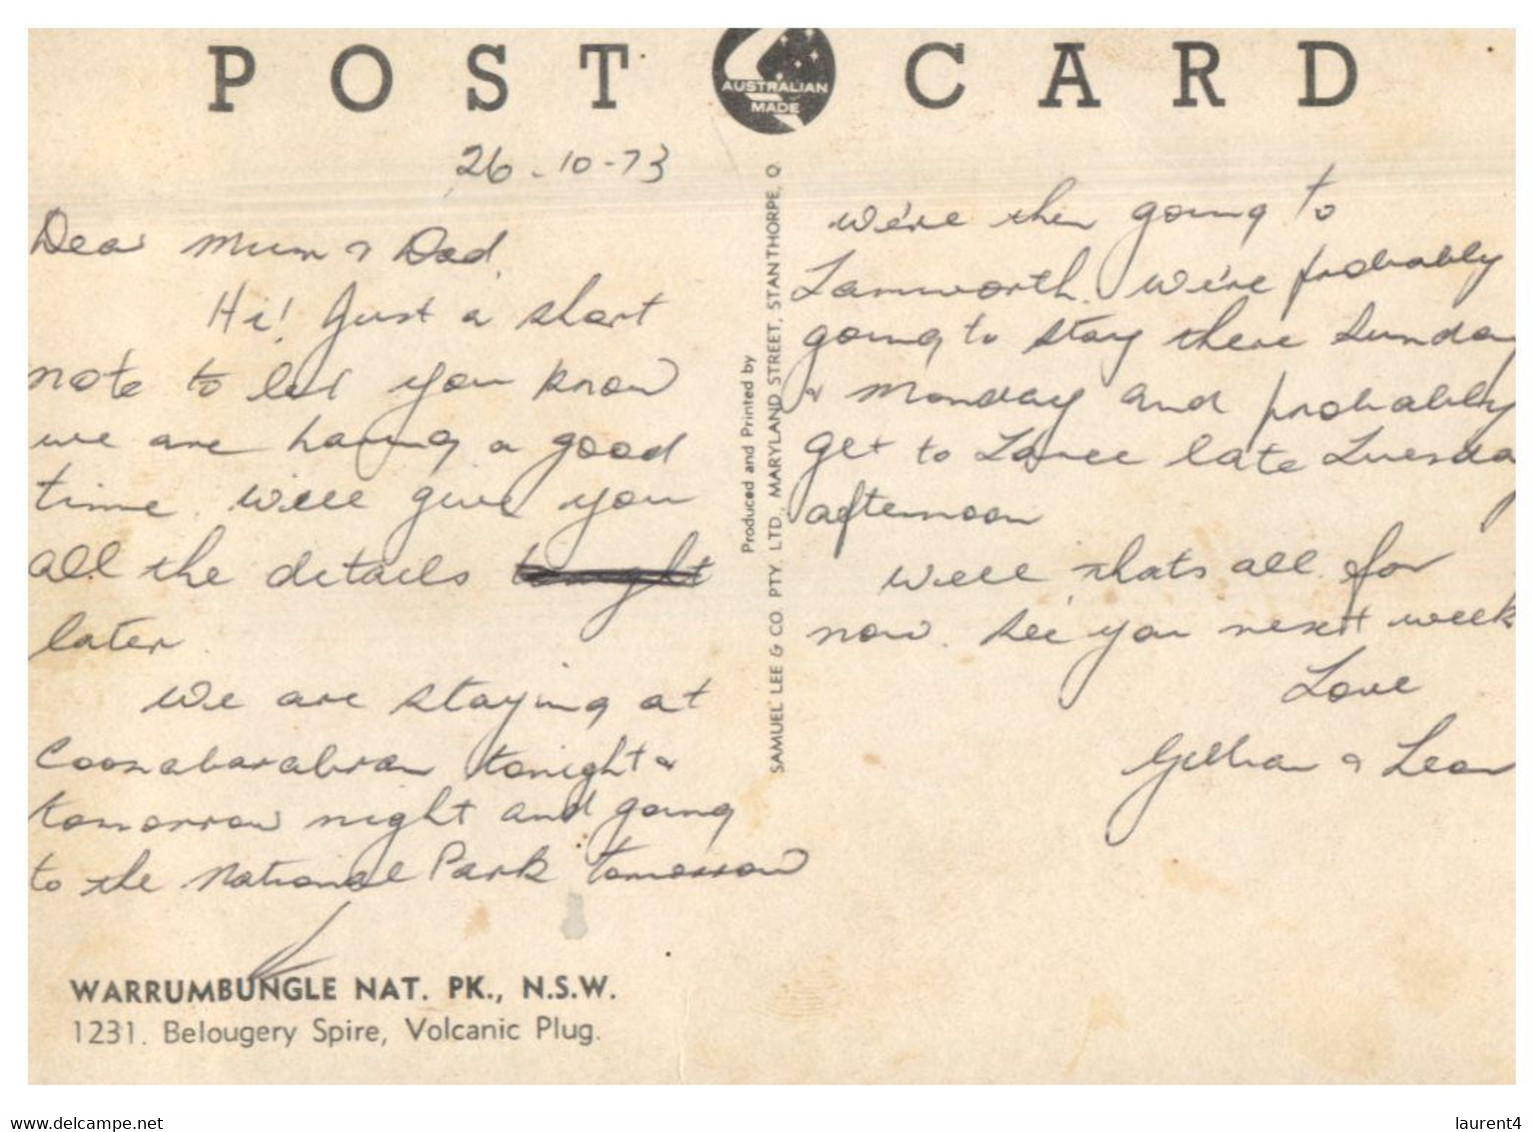 POST CARD
AUSTRALIAN
MADE
26-10-73
Dear Mum & Dad,
Hi! Just a short
note to let you know
we are having a good
time. Will give you
all the details tonight
later.
We are staying at
Coonabarabran tonight &
tomorrow night and going
to the National Park tomorrow
WARRUMBUNGLE NAT. PK., N.S.W.
1231. Belougery Spire, Volcanic Plug.
Produced and Printed by
SAMUEL LEE & CO PTY. LTD., MARYLAND STREET, STANTHORPE, Q.
We're then going to
Tamworth. We're probably
going to stay there Sunday
& Monday and probably
get to Taree late Tuesda
afternoon
Well thats all for
now. See you next week
Love
Gillian &
laurent4
www.delcampe.net